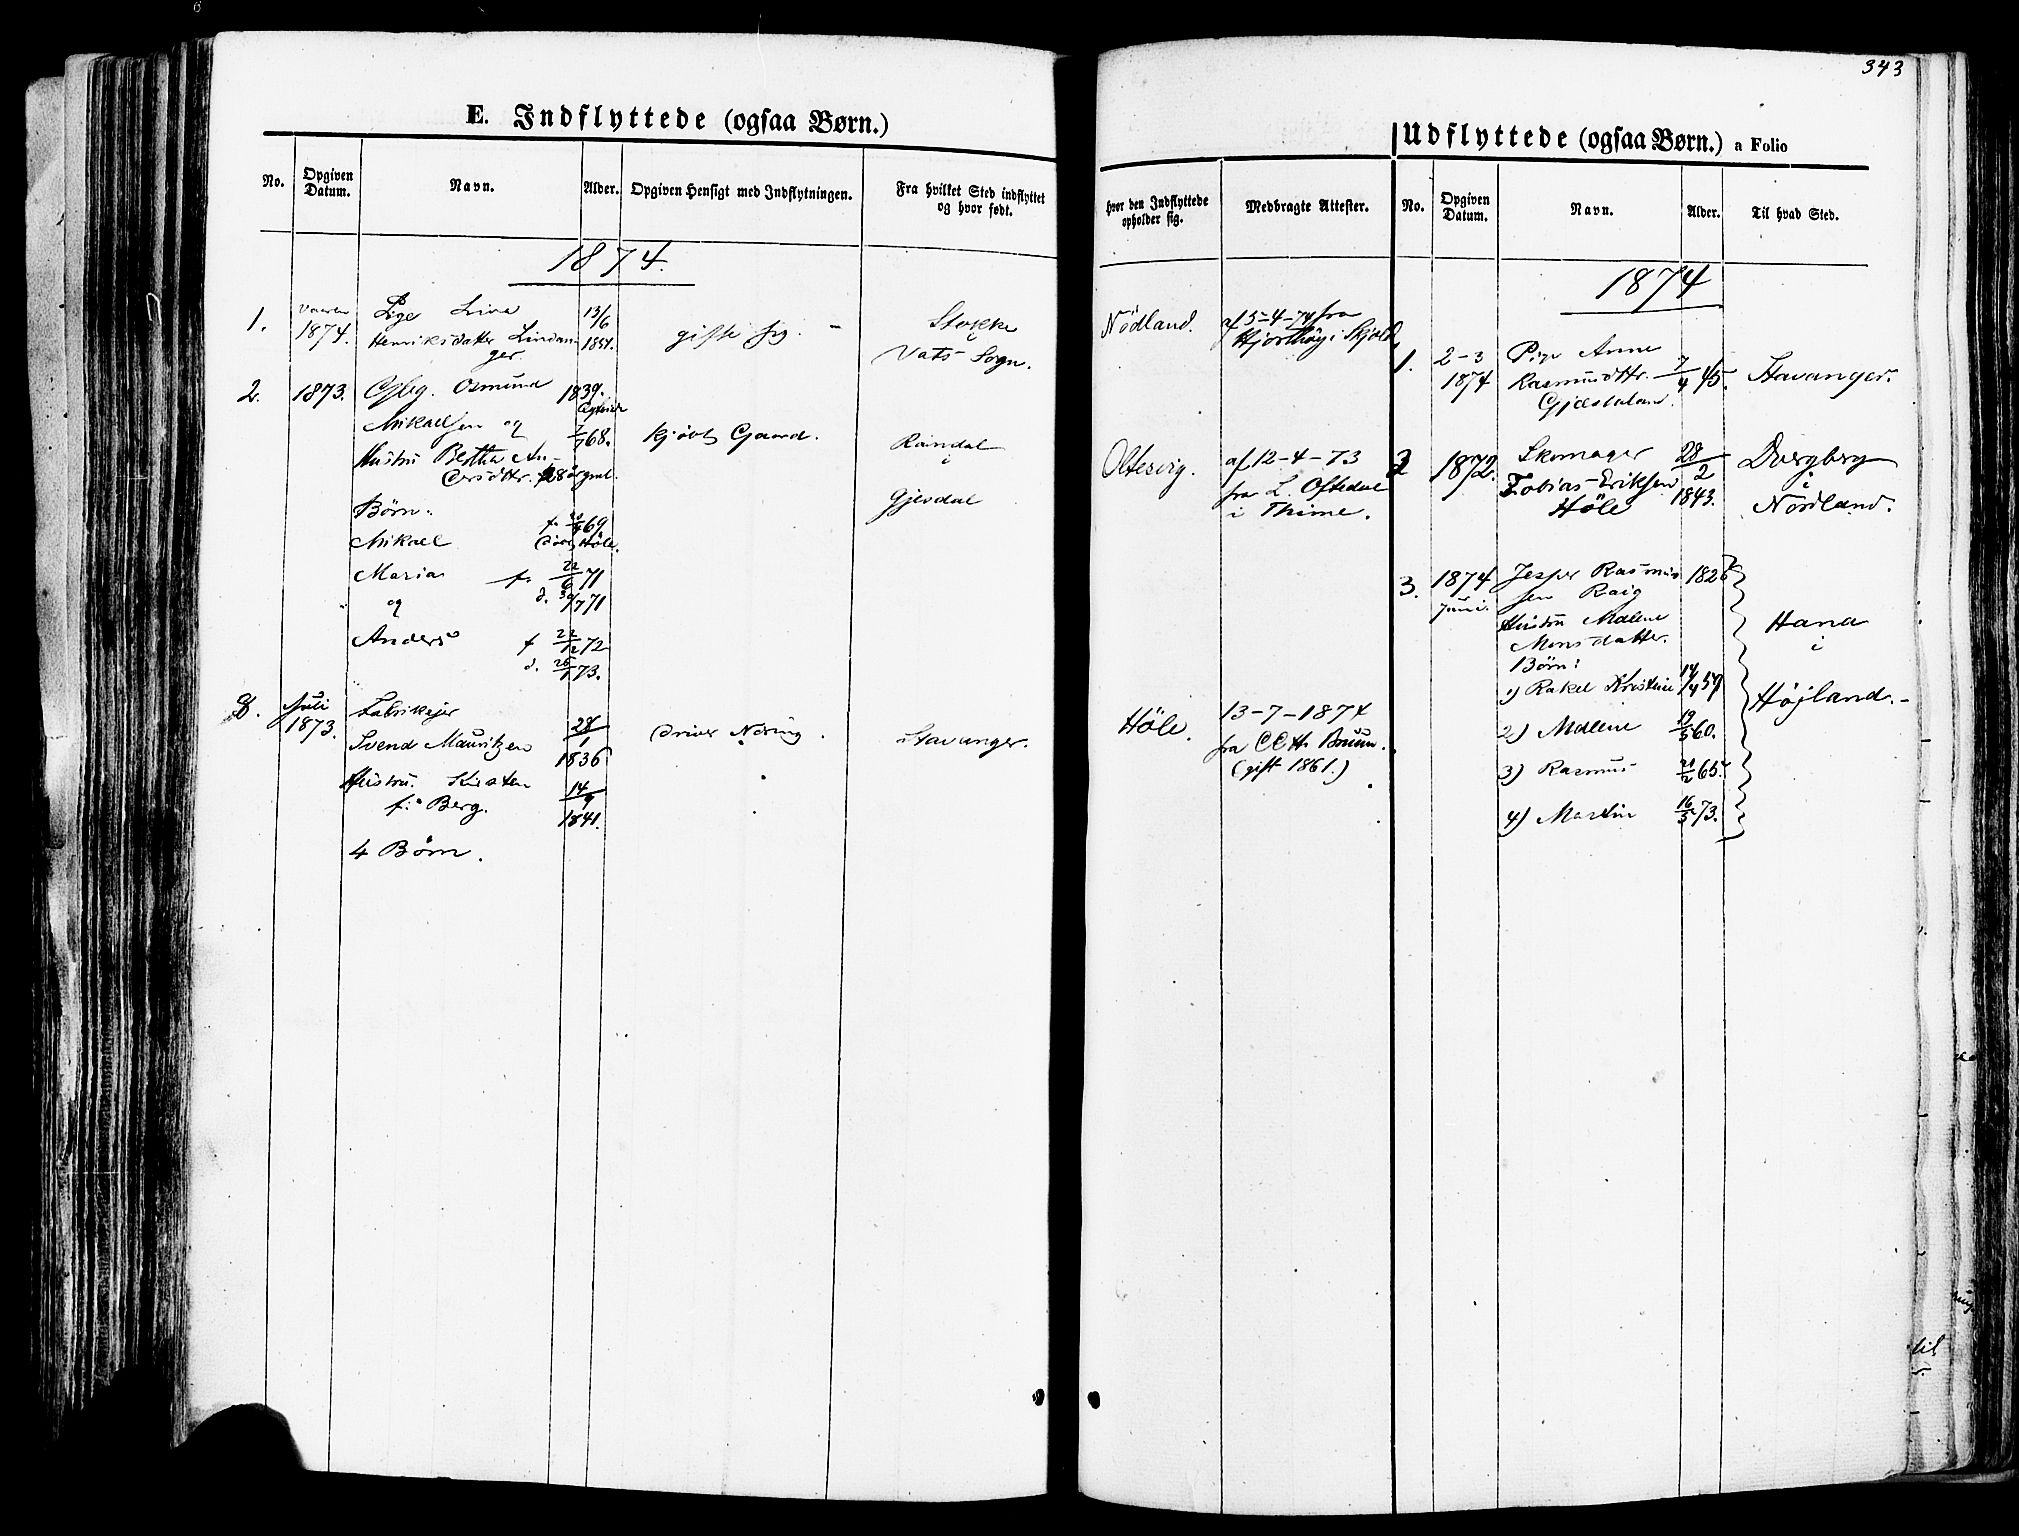 343
E. Indflyttede (ogsaa Børn.)
No.
Opgiven Datum.
Navn.
Alder.
Opgiven Hensigt med Indflytningen.
Fra hvilket Sted indflyttet og hvor født.
1874.
1.
1874.
Pige Line
13/6
Henriksdatter Lindan-
1851.
ger
gifte sig.
Stokke
i
Vats Sogn.
2.
1873.
Osmund
1839.
Mikaelsen og
7/7 68.
Hustru Bertha An-
dersdttr. 28 år gml.
kjøbt Gaard.
Randal
i
Gjesdal
Børn:
Mikael
69
døbt Höle.
Maria
f. 22/6 71
og
d. 30/7 71
Anders
f 22/12 72
d. 26/1 73.
Juli
1873.
Fabrikejer
Svend Mauritzen
28/1
1836
Hustru Kirsten
f: Berg.
14/9
1841.
4 Børn.
driver Næring.
Stavanger.
Hvor den Indflyttede opholder sig.
Medbragte Attester.
Nödland.
af 5-4-74 fra
Hjorthöy i Skjold
Oltesvig.
af 12-4-73
fra L. Oftedal
i Thime.
Höle.
13-7-1874
fra CCH. Bruun.
(gift 1861.)
Udflyttede (ogsaa Børn.) a Folio
No.
Opgiven Datum.
Navn.
Alder.
Til hvad Sted.
1874
1.
2-3
1874
Pige Anne
Rasmusdttr.
7/4 45.
Stavanger.
2
1872.
Skomager
Tobias Eriksen
Höle
28/2
1843.
Dvergberg
i
Nordland.
3.
1874
Juni.
Jesper Rasmus
sen Raig
1826
Hustru Malene
Monsdatter.
Børn:
1) Rakel Kristine 14/4 57
2) Malene 19/5 60.
3) Rasmus 21/2 65.
4) Martin 16/5 73.
Hana
i
Højland.
til